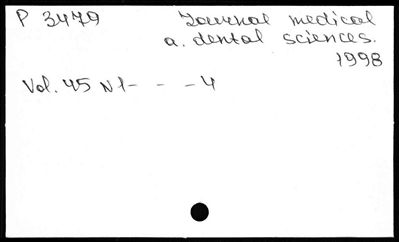 P 3479 Journal medical
a. dental sciences.
1998
Vol. 45 N 1 - - - 4